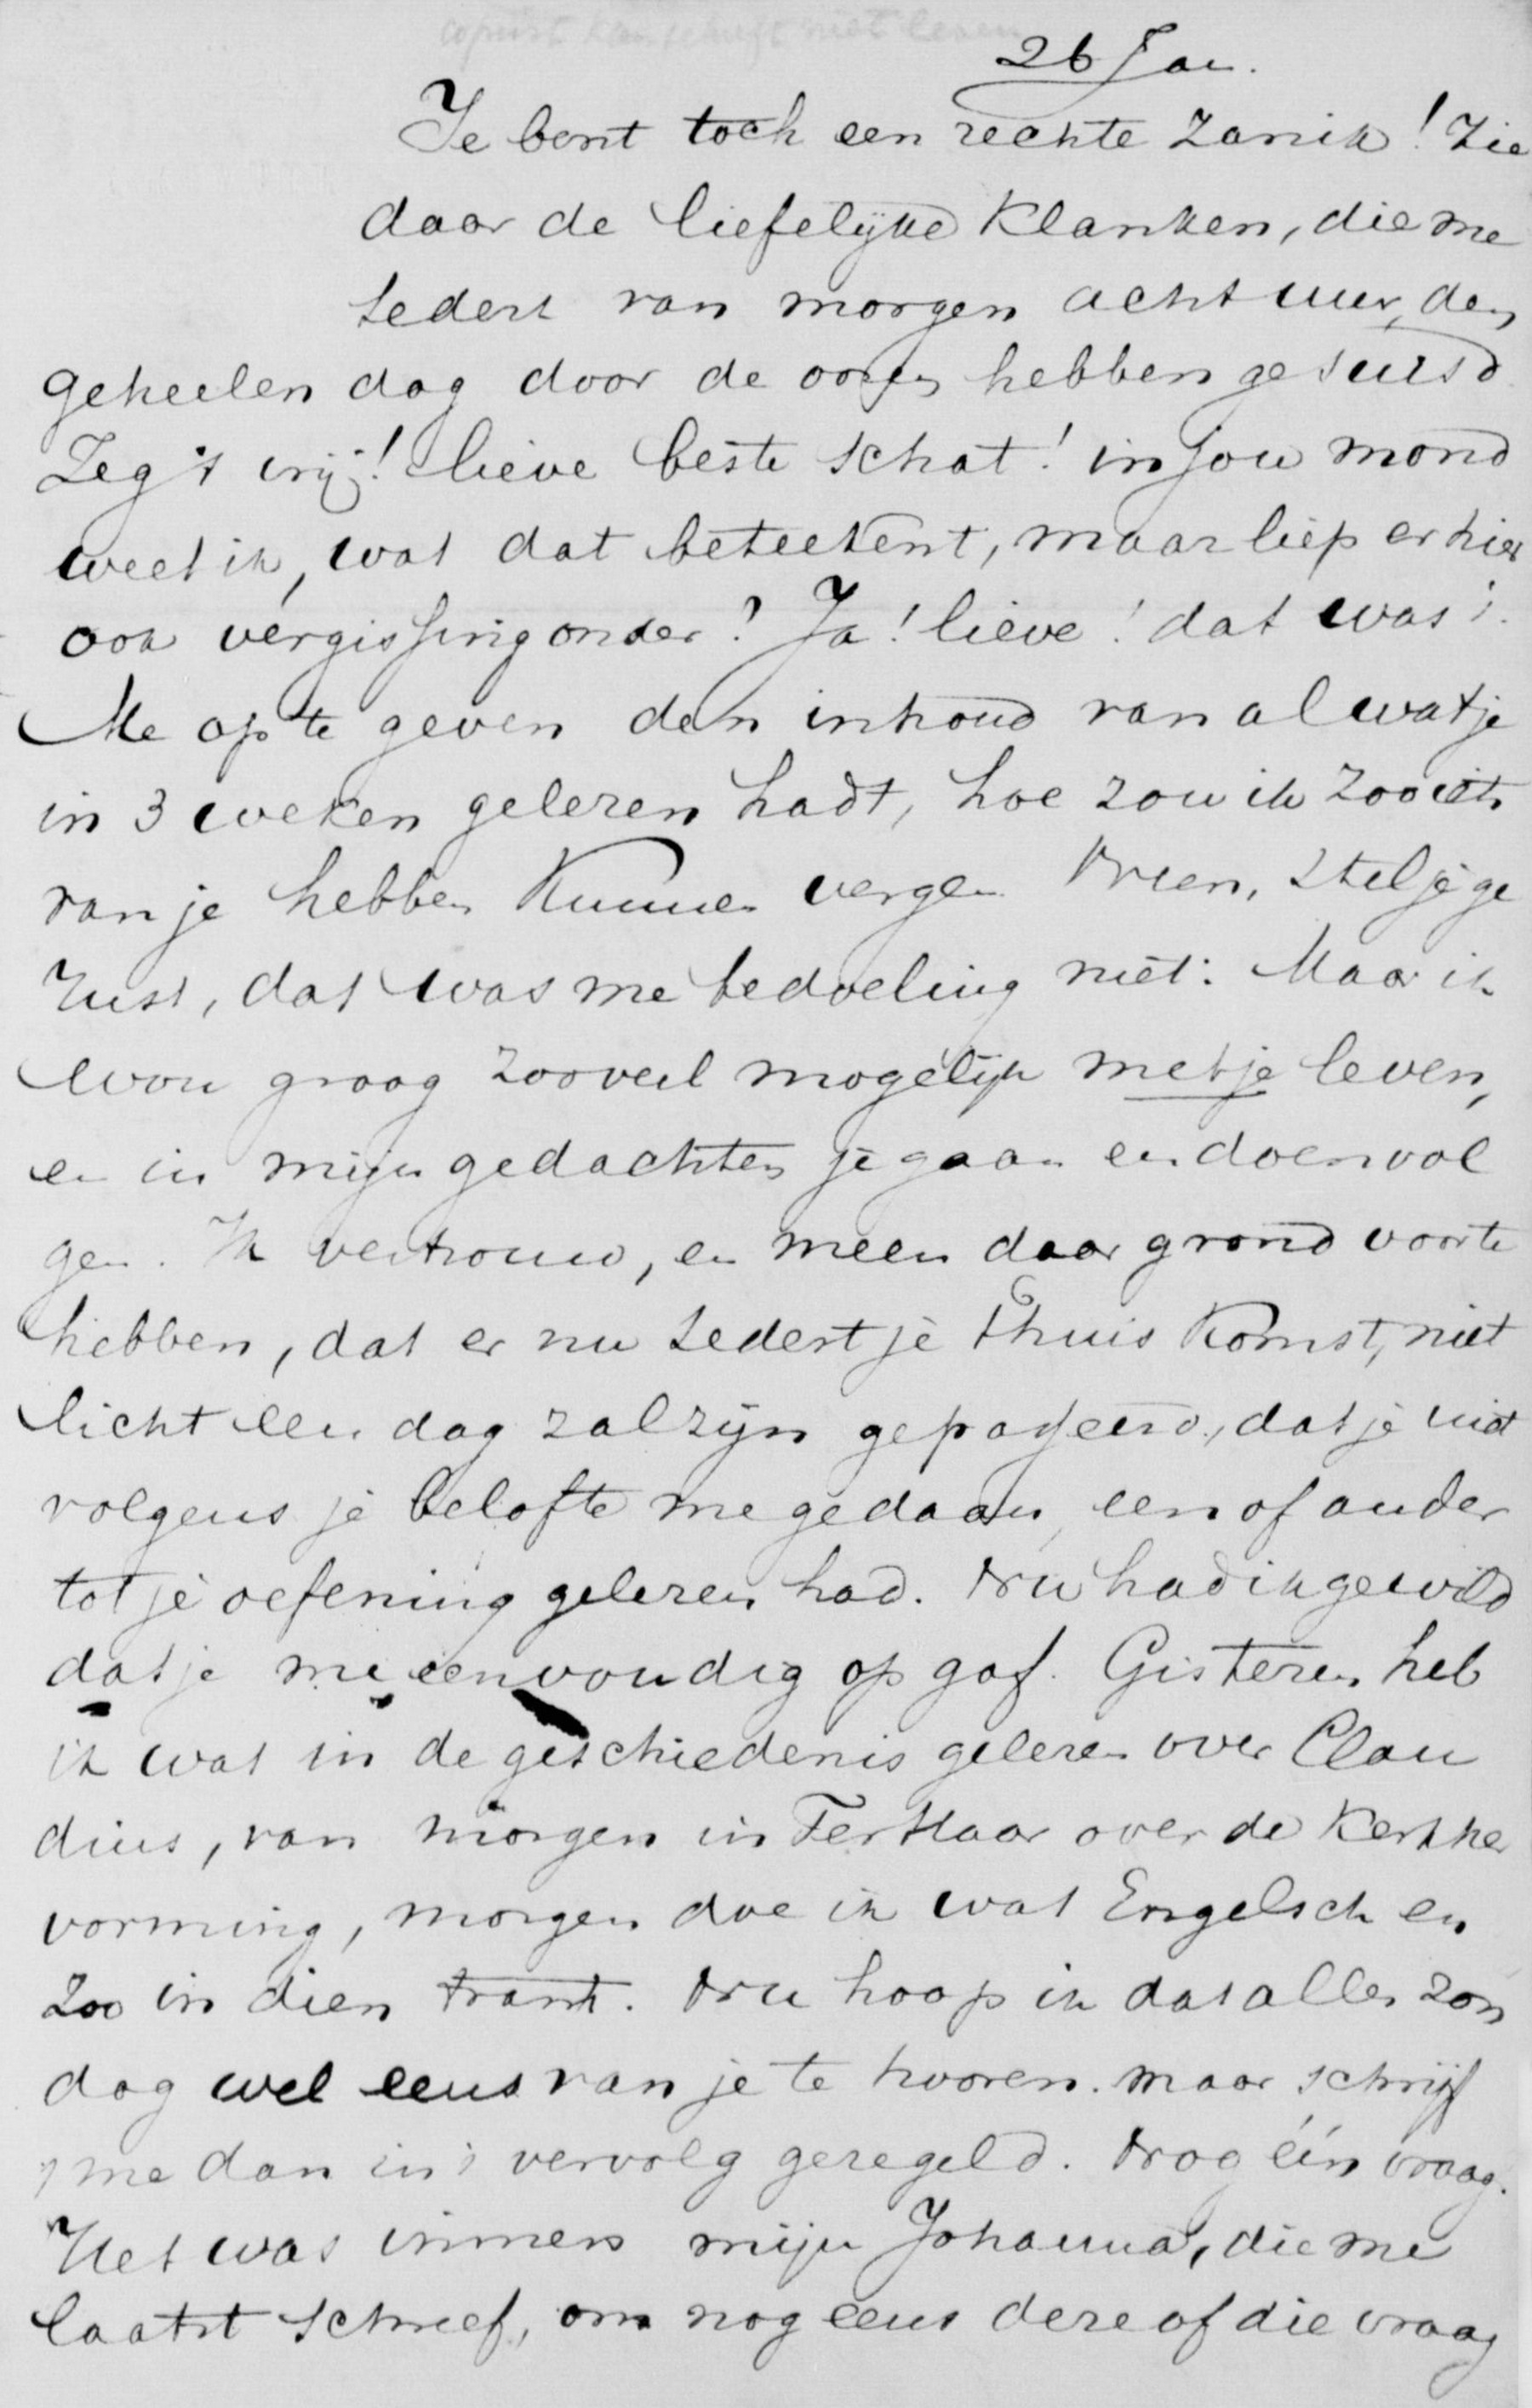 copiist kan schrift niet lezen
26 Jan.
Je bent toch een rechte zanik! Zie
daar de liefelijke klanken, die me
sedert van morgen acht uur, den
geheelen dag door de ooren hebben gesuisd.
Zeg 't vrij! lieve beste schat! in jou mond
weet ik, wat dat beteekent, maar liep er hier
ook vergissing onder? Ja! lieve! dat was 't.
Me op te geven den inhoud van al wat je
in 3 weken gelezen hadt, hoe zou ik zoo iets
van je hebben kunnen vergen. Neen, stel je ge
rust, dat was me bedoeling niet. Maar ik
wou graag zooveel mogelijk met je leven,
en in mijn gedachten je gaan en doen vol
gen. Ik vertrouw, en meen daar grond voor te
hebben, dat er nu sedert je thuis komst, niet
licht een dag zal zijn gepasseerd, dat je niet
volgens je belofte me gedaan, een of ander
tot je oefening gelezen had. Nu had ik gewild
dat je me eenvoudig op gaf. Gisteren heb
ik wat in de geschiedenis gelezen over Clau
dius, van morgen in Ter Haar over de kerkher
vorming, morgen doe ik wat Engelsch en
zoo in dien trant. Nu hoop ik dat alles zon
dag wel eens van je te hooren. maar schrijf
't me dan in 't vervolg geregeld. Nog één vraag.
Het was immers mijn Johanna, die me
laatst schreef, om nog eens deze of die vraag